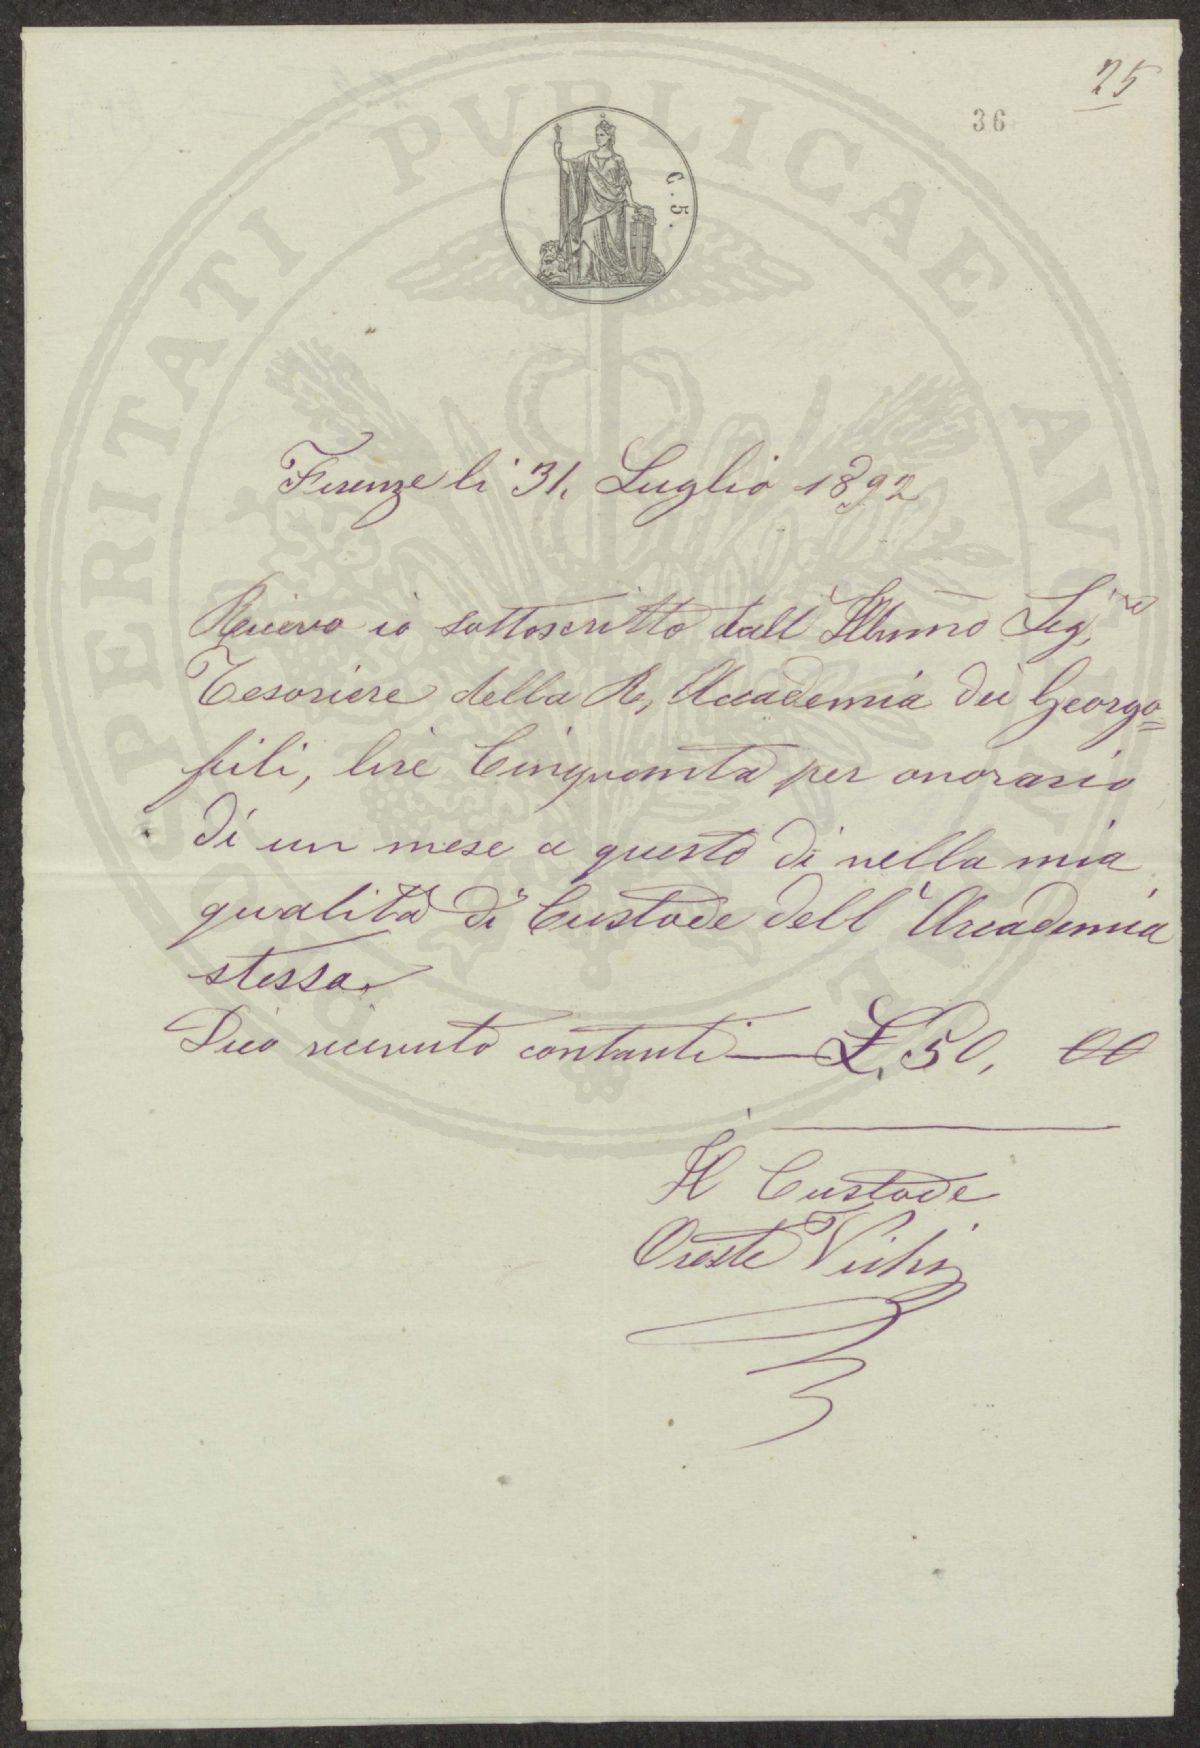 25
36
C. 5.
PROSPERITATI PUBLICAE AUGENDAE
Firenze li 31. Luglio 1892
Ricevo io sottoscritto dall' Illmmo Sig.re
Tesoriere della R. Accademia dei Georgo=
fili, lire Cinquanta per onorario
di un mese a questo dì nella mia
qualità di Custode dell' Accademia
stessa.
Dico ricevuto contanti — £. 50, 00
Il Custode
Oreste Vichi